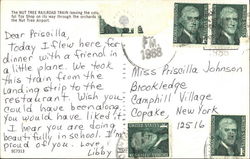 The NUT TREE RAILROAD TRAIN leaving the colorful Toy Shop on its way through the orchards to the Nut Tree Airport.
Dear Priscilla,
Today I flew here for
dinner with a friend in
a little plane. We took
this train from the
landing strip to the
restaurant. Wish you
could have been along.
you would have liked it.
I hear you are doing so
beautifully in school. I'm
proud of you. Love,
Libby
PM
1968
Miss Priscilla Johnson
Brookledge
Camphill Village
Copake, New York
12516